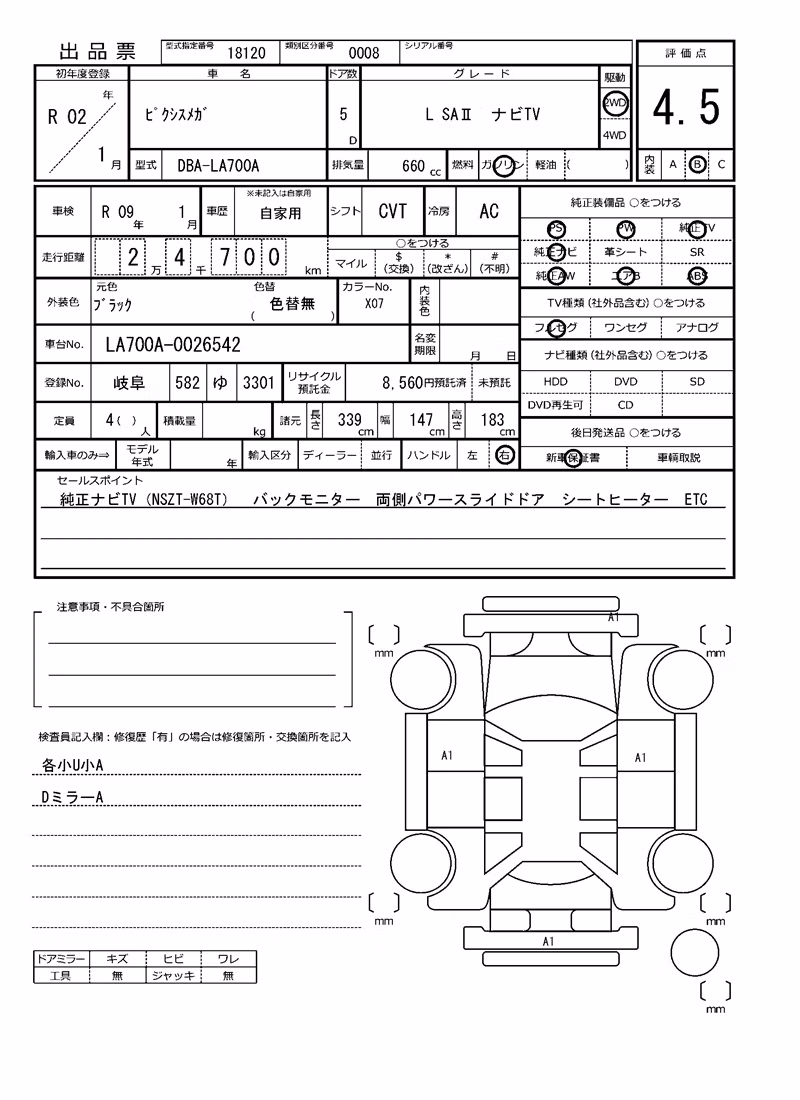 出品票 型式指定番号 18120 類別区分番号 0008 シリアル番号
評価点
4.5
内装 A B C
初年度登録 車名 ドア数 グレード 駆動
R 02 年 1 月
ﾋﾟｸｼｽﾒｶﾞ 5 D L SAⅡ ナビTV 2WD
4WD
型式 DBA-LA700A 排気量 660 cc 燃料 ガソリン 軽油 ( )
車検 R 09 年 1 月 車歴 ※未記入は自家用 自家用 シフト CVT 冷房 AC
走行距離 2 万 4 千 7 0 0 km
○をつける
マイル $ (交換) * (改ざん) # (不明)
外装色 元色 ﾌﾞﾗｯｸ 色替 ( 色替無 ) カラーNo. X07 内装色
車台No. LA700A-0026542 名変期限 月 日
登録No. 岐阜 582 ゆ 3301 リサイクル預託金 8,560円預託済 未預託
定員 4( ) 人 積載量 kg 諸元 長さ 339 cm 幅 147 cm 高さ 183 cm
輸入車のみ⇒ モデル年式 年 輸入区分 ディーラー 並行 ハンドル 左 右
純正装備品 ○をつける
PS PW 純正TV
純正ナビ 革シート SR
純正AW エアB ABS
TV種類(社外品含む)○をつける
フルセグ ワンセグ アナログ
ナビ種類(社外品含む)○をつける
HDD DVD SD
DVD再生可 CD
後日発送品 ○をつける
新車保証書 車輌取説
セールスポイント
純正ナビTV（NSZT-W68T） バックモニター 両側パワースライドドア シートヒーター ETC
注意事項・不具合箇所
検査員記入欄：修復歴「有」の場合は修復箇所・交換箇所を記入
各小U小A
DミラーA
ドアミラー キズ ヒビ ワレ
工具 無 ジャッキ 無
A1
mm mm
A1 A1
mm mm
A1
mm